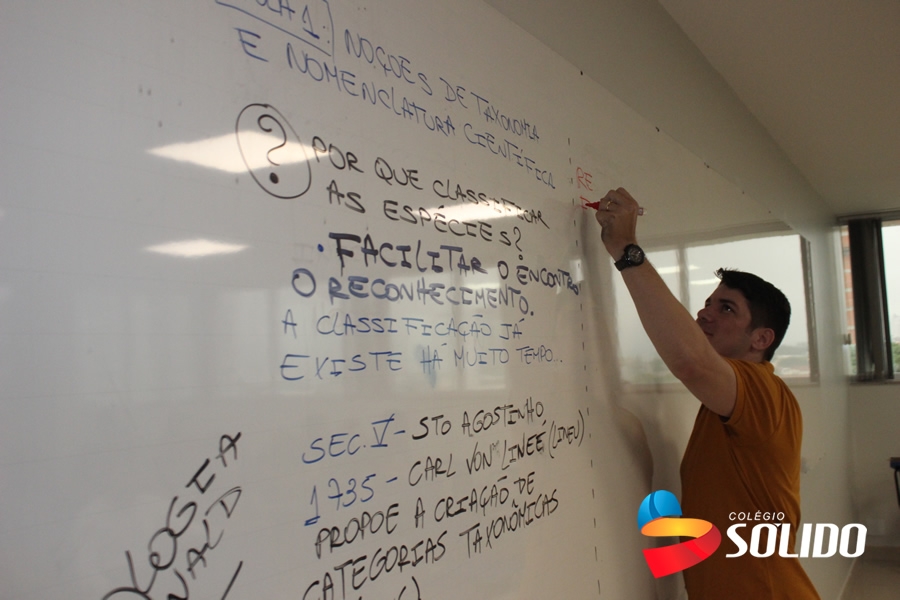 NOÇÕES DE TAXONOMIA
E NOMENCLATURA CIENTÍFICA
?
POR QUE CLASSIFICAR
AS ESPÉCIES?
• FACILITAR O ENCONTRO
O RECONHECIMENTO.
A CLASSIFICAÇÃO JÁ
EXISTE HÁ MUITO TEMPO...
SEC. V - STO AGOSTINHO
1735 - CARL VON LINEÉ (LINEU)
PROPOE A CRIAÇÃO DE
CATEGORIAS TAXONÔMICAS
RE
COLÉGIO
SÓLIDO